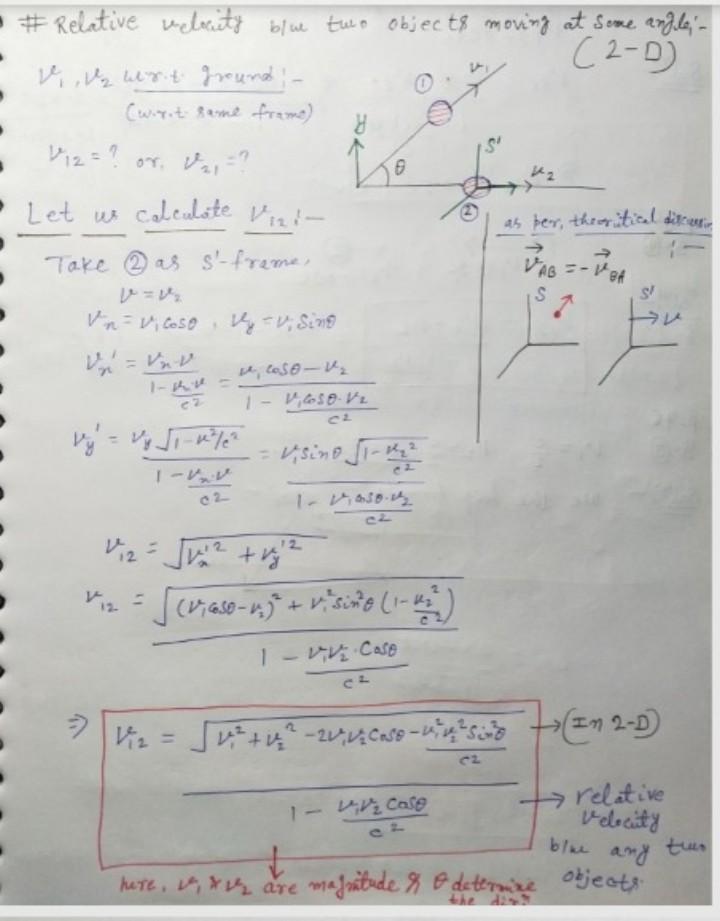 # Relative velocity b/w two objects moving at some angle:-
(2-D)
v₁, v₂ w.r.t. ground:-
(w.r.t. same frame)
v₁₂ = ? or, v₂₁ = ?
① v₁
y θ S' v₂
②
Let us calculate v₁₂:-
Take ② as S'-frame,
v = v₂
vₓ = v₁cosθ, v_y = v₁ Sinθ
vₓ' = (vₓ-v)/(1-vₓ.v/c²) = (v₁cosθ-v₂)/(1 - v₁cosθ.v₂/c²)
v_y' = v_y√(1-v²/c²)/(1-vₓ.v/c²) = v₁sinθ√(1-v₂²/c²)/(1- v₁cosθ.v₂/c²)
v₁₂ = √(vₓ'² + v_y'²)
v₁₂ = √((v₁cosθ-v₂)² + v₁²sin²θ(1-v₂²/c²))/(1 - v₁v₂.Cosθ/c²)
⇒ v₁₂ = √(v₁²+v₂² -2v₁v₂Cosθ - v₁²v₂²Sin²θ/c²)/(1 - v₁v₂Cosθ/c²)
→ (In 2-D)
→ relative
velocity
b/w any two
objects.
here, v₁ & v₂ are magnitude & θ determine
the dirⁿ
as per, theoritical discussion
:-
v⃗_AB = -v⃗_BA
S S'
→v